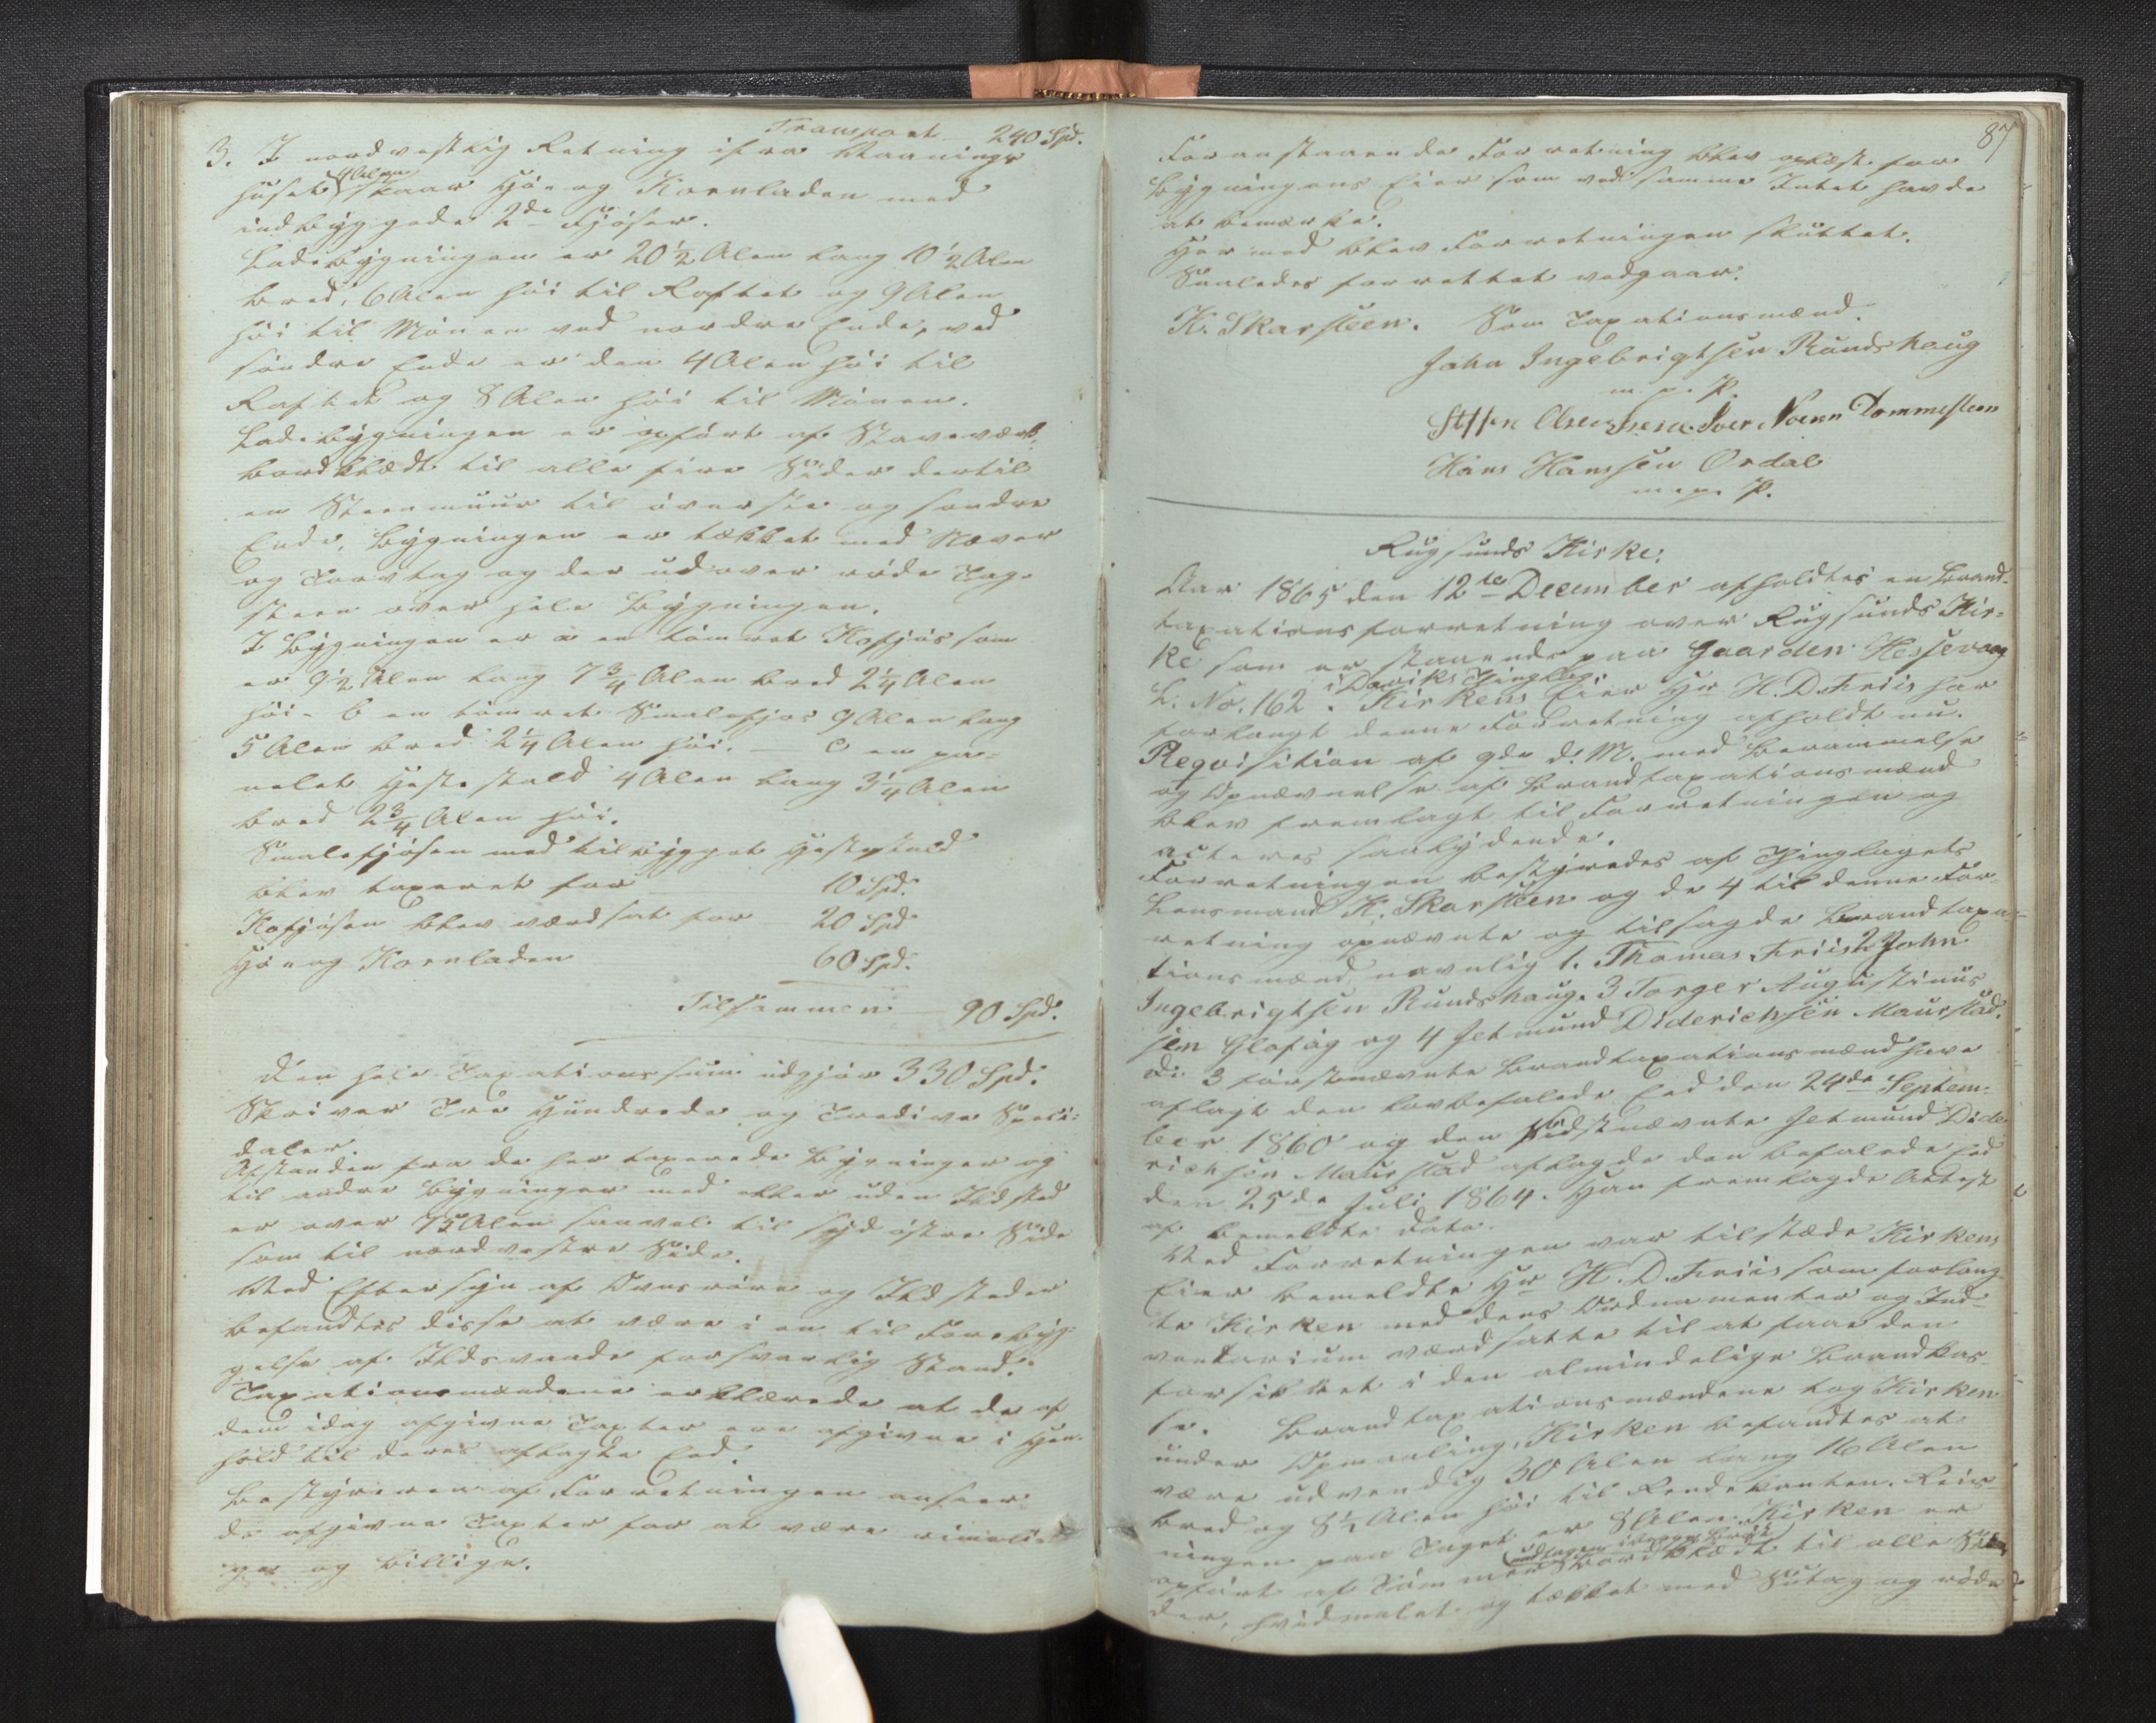 Transport 240 Spd.
3. I nordvestlig Retning ifra Vaanings
huset 4 Alen staar Hö- og Kornladen med
indbyggede 2de Fjöser.
Ladebygningen er 20½ Alen lang 10½ Alen
bred, 6 Alen höi til Raftet og 9 Alen
höi til Mönen ved nordre Ende, ved
söndre Ende er den 4 Alen höi til
Raftet og 8 Alen höi til Mönen.
Ladebygningen er opfört af Stavværk,
bordklædt til alle fire Sider dertil
en Steenmuur til överste og söndre
Ende, Bygningen er tækket med Næver
og Torvtag og der udover röde Tag-
steen over hele Bygningen.
I Bygningen er a en tömret Kofjös som
er 9½ Alen lang 7¾ Alen bred 2¼ Alen
höi - b en tömret Smalefjös 9 Alen lang
5 Alen bred 2¼ Alen höi. - c en pa-
nelet Hestestald 4 Alen lang 3¼ Alen
bred 2¾ Alen höi.
Smalefjösen med tilbygget Hestestald
blev taxeret for 10 Spd.
Kofjösen blev værdsat for 20 Spd
Hö- og Kornladen 60 Spd.
Tilsammen - 90 Spd.
Den hele Taxationssum udgjör 330 Spd.
Skriver Tre Hundrede og Tredive Speci-
daler.
Afstanden fra de her taxerede Bygninger og
til andre Bygninger med eller uden Ildsted
er over 75 Alen saavel til sydöstre Side
som til nordvestre Side.
Ved Eftersyn af Ovnsröre og Ildsteder
befandtes disse at være i en til Forebyg-
gelse af Ildsvaade forsvarlig Stand.
Taxationsmændene erklærede at de af
dem idag afgivne Taxter ere afgivne i Hen-
hold til deres aflagte Eed.
Bestyreren af Forretningen anseer
de afgivne Taxter for at være rimeli-
ge og billige.
87
Foranstaaende Forretning blev oplæst for
Bygningens Eier som ved samme Intet havde
at bemærke.
Hermed blev Forretningen sluttet.
Saaledes forrettet vedgaar.
K. Skarsteen. Som Taxationsmænd.
John Ingebrigtsen Rundshaug
m. p. P.
Steffen Olsen Iver Dommesteen
Hans Hanssen Ordal
m. p. P.
Rugsunds Kirke.
Aar 1865 den 12te December afholdtes en Brand-
taxationsforretning over Rugsunds Kir-
ke som er staaende paa Gaarden Hessevaag
i Daviks Thinglag
L. No. 162. Kirkens Eier Hr H. D. Friis har
forlangt denne Forretning afholdt nu.
Reqvisition af 9de d. M. med Berammelse
og Opnævnelse af Brandtaxationsmænd
blev fremlagt til Forretningen og
acteres saalydende.
Forretningen bestyredes af Thinglagets
Lensmand K. Skarsteen og de 4 til denne For-
retning opnævnte og tilsagde Brandtaxa-
tionsmænd navnlig 1. Thomas Friis 2 John
Ingebrigtsen Rundshaug. 3 Torger Augustinus
sen Glofög og 4 Getmund Diderichsen Maurstad.
De 3 förstnævnte Brandtaxationsmænd have
aflagt den lovbefalede Eed den 24de Septem-
ber 1860 og den sidstnævnte Getmund Dide
richsen Maurstad aflagde den befalede Eed
den 25de Juli 1864. Han fremlagde Attest
af bemeldte Dato.
Ved Forretningen var tilstæde Kirkens
Eier bemeldte Hr H. D. Friis som forlang-
te Kirken med dens Ordnamenter og Ind-
ventarium værdsatte til at faae den
forsikkret i den almindelige Brandkas-
se. Brandtaxationsmændene tog Kirken
under Opmaaling, Kirken befandtes at
være udvendig 30 Alen lang 16 Alen
bred og 8½ Alen höi til Rendekanten. Reis-
ningen paa Taget er 8 Alen. Kirken er
opfört af Tömmer bordklædt til alle Si-
der, hvidmalet og tækket med Sutag og röde